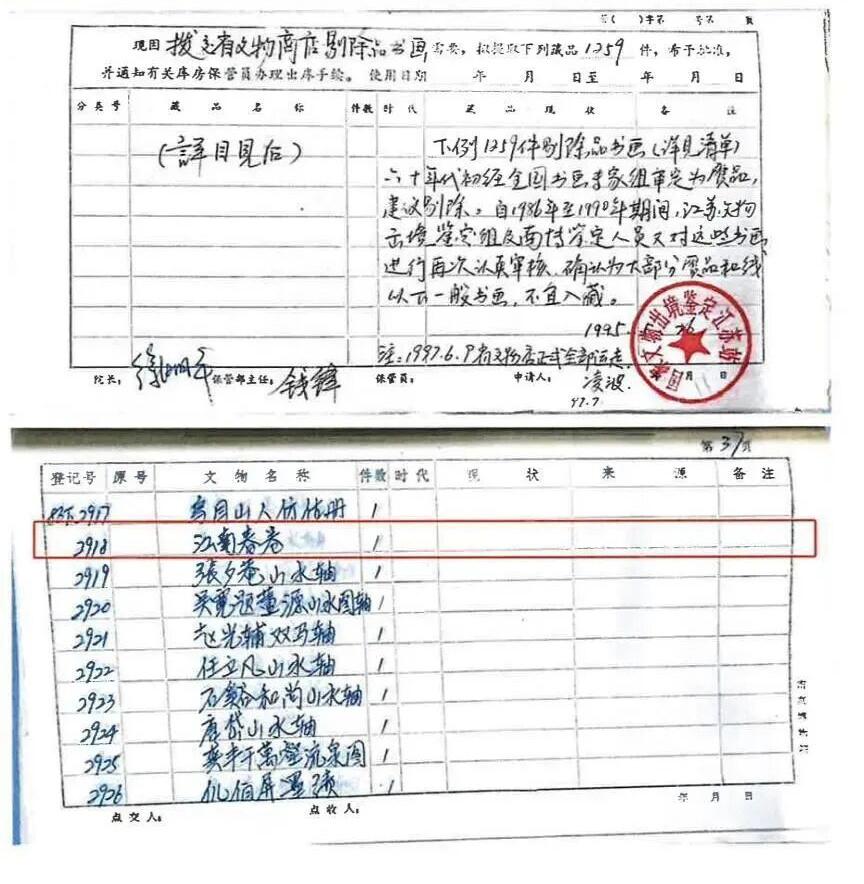 第( )字第 号第 页
现因 拨交省文物商店剔除品书画 需要，拟提取下列藏品 1259 件，希予批准，
并通知有关库房保管员办理出库手续。使用日期 年 月 日至 年 月 日
分类号 藏品名称 件数 时代 藏品现状 备注
(詳目見后)
下例1259件剔除品书画(详見清单)
六十年代初经全国书画专家组审定为赝品，
建议剔除。自1986年至1990年期间，江苏文物
出境鉴定组及南博鉴定人员又对这些书画
进行再次认真审核，确认为大部分赝品和线
以下一般书画，不宜入藏。
1995. 26
注：1997.6.9省文物店正式全部运走
院长： 保管部主任：钱锋 保管员： 申请人：凌波 月 日
97.7.
国家文物出境鉴定江苏站
第37页
登记号 原号 文物名称 件数 时代 现状 来源 备注
2917 烏目山人仿古册 1
2918 江南春卷 1
2919 張夕菴山水轴 1
2920 吴寬题董源山水图轴 1
2921 赵光辅双马轴 1
2922 任立凡山水轴 1
2923 石谿和尚山水轴 1
2924 唐岱山水轴 1
2925 流泉图 1
2926 仇伯屏墨 1
点交人： 点收人： 年 月 日